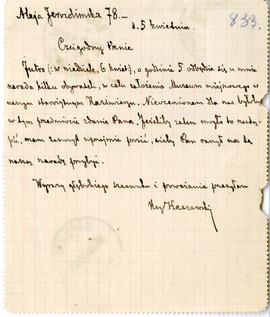 Aleja Jerozolimska 78.—
d. 5 kwietnia.
833.
Czcigodny Panie
Jutro (: w niedzielę, 6 kwiet), o godzinie 5 odbędzie się u mnie
narada kilku obywateli, w celu założenia Museum miejscowego w
naszym starożytnym Kazimierzu. Nieocenionem dla nas byłoby
w tym przedmiocie zdanie Pana. Jeśliby zatem mogło to nastą-
pić, mam zaszczyt uprzejmie prosić, ażeby Pan raczył na tę
naszą naradę przybyć.
Wyrazy głębokiego szacunku i poważania przesyłam
Kaszewski